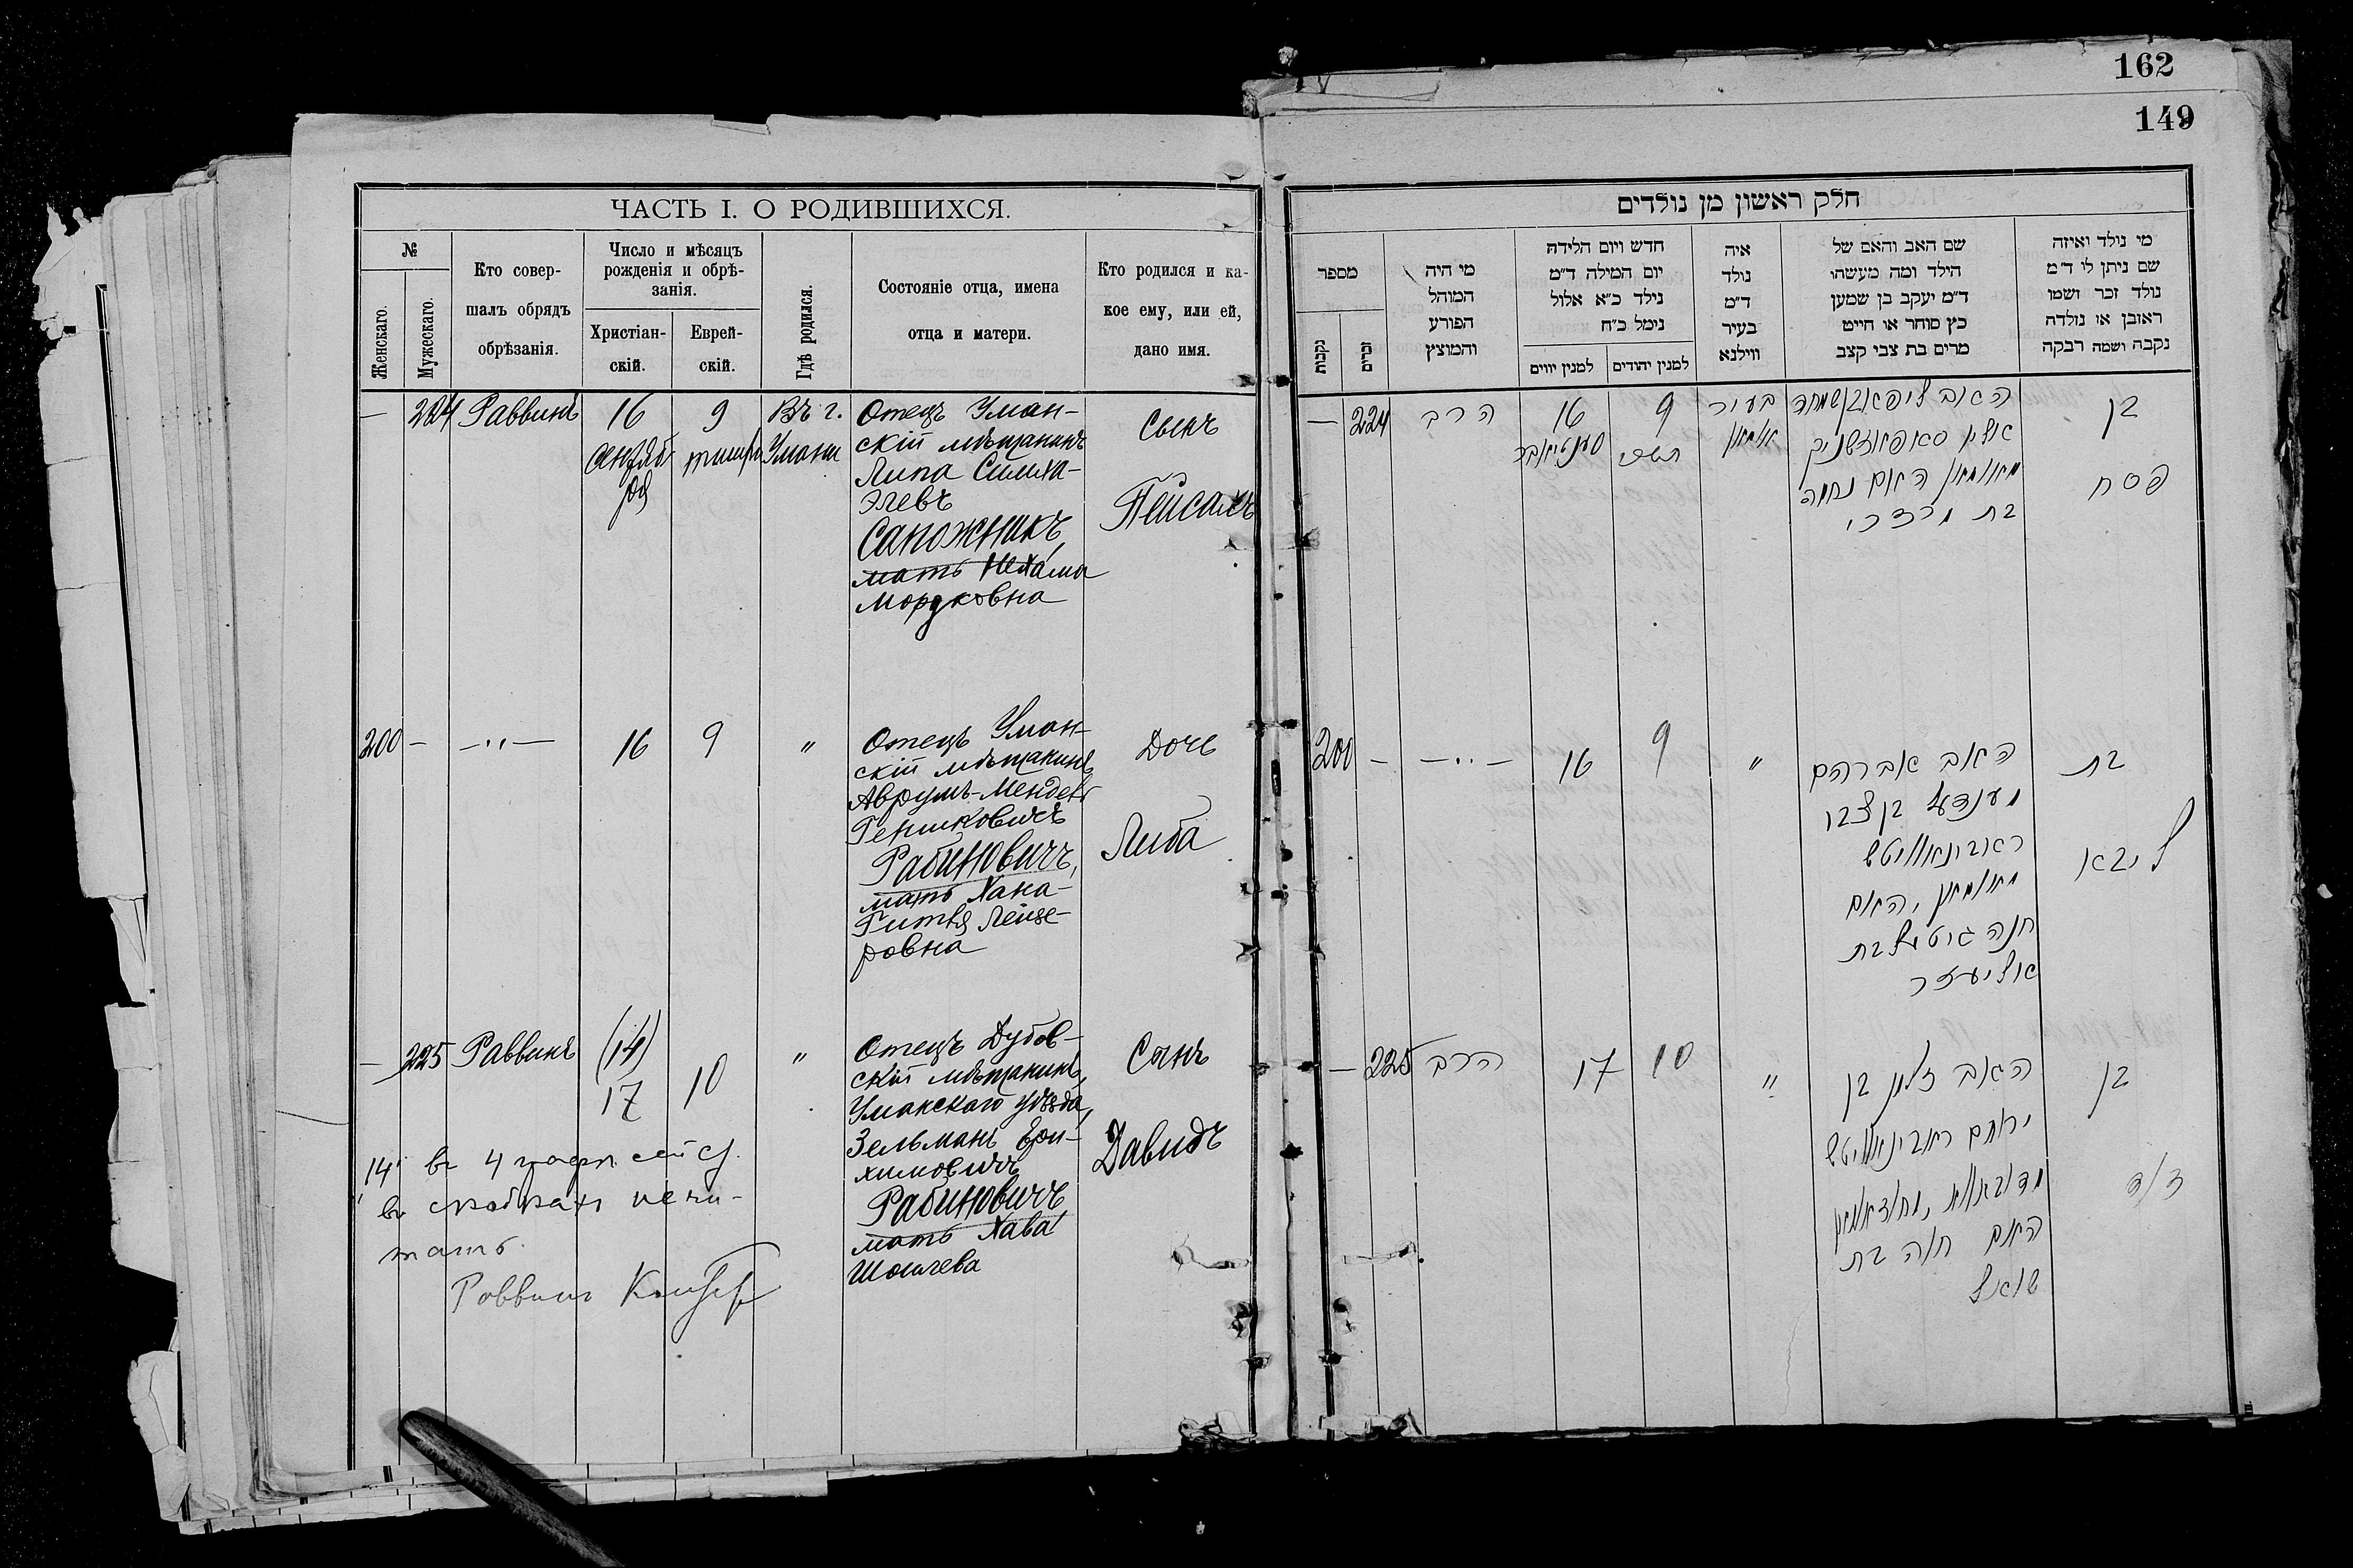 162
149
ЧАСТЬ I. О РОДИВШИХСЯ.
№
Женскаго.
Мужескаго.
Кто совер-
шалъ обрядъ
обрѣзанія.
Число и мѣсяцъ
рожденія и обрѣ-
занія.
Христіан-
скій.
Еврей-
скій.
Гдѣ родился.
Состояніе отца, имена
отца и матери.
Кто родился и ка-
кое ему, или ей,
дано имя.
— 224 Раввинъ 16 9 Въ г.
Умани
Отецъ Уман-
скій мѣщанинъ
Липа Симха-
Сапожникъ,
мать Нехама
Мордковна
Сынъ
Пейсахъ
200 — —„— 16 9 "
Отецъ Уман-
скій мѣщанинъ
Аврумъ-Мендель
Гершковичъ
Рабиновичъ,
мать Хана-
Гитля Лейзе-
ровна
Дочь
Либа
— 225 Раввинъ (14)
17 10 "
Отецъ Дубов-
скій мѣщанинъ,
Уманскаго уѣзда,
Зельманъ Еру-
химовичъ
Рабиновичъ
мать Хава
Сынъ
Давидъ
"14" в 4 граф. сей ст.
в скобках не чи-
тать.
Раввинъ
חלק ראשון מן נולדים
מספר
נקבות
זכרים
מי היה
המוהל
הפורע
והמוצץ
חדש ויום הלידה
יום המילה ד״מ
נילד כ״א אלול
נימל כ״ח
למנין יווים
למנין יהודים
איה
נולד
ד״מ
בעיר
ווילנא
שם האב והאם של
הילד ומה מעשהו
ד״מ יעקב בן שמען
כץ סוחר או חייט
מרים בת צבי קצב
מי נולד ואיזה
שם ניתן לו ד״מ
נולד זכר ושמו
ראובן או נולדה
נקבה ושמה רבקה
— 224 הרב 16 9
תשרי
בעיר
אומאן
מאומאן האם נחמה
בת מרדכי
בן
פסח
200 — —„— 16 9 "
האב אברהם
מענדעל בן צבי
ראבינאוויטש
מאומאן, האם
חנה גיטל בת
אליעזר
בת
ליבא
— 225 הרב 17 10 "
האב זלמן בן
ירוחם ראבינאוויטש
האם חוה בת
בן
דוד